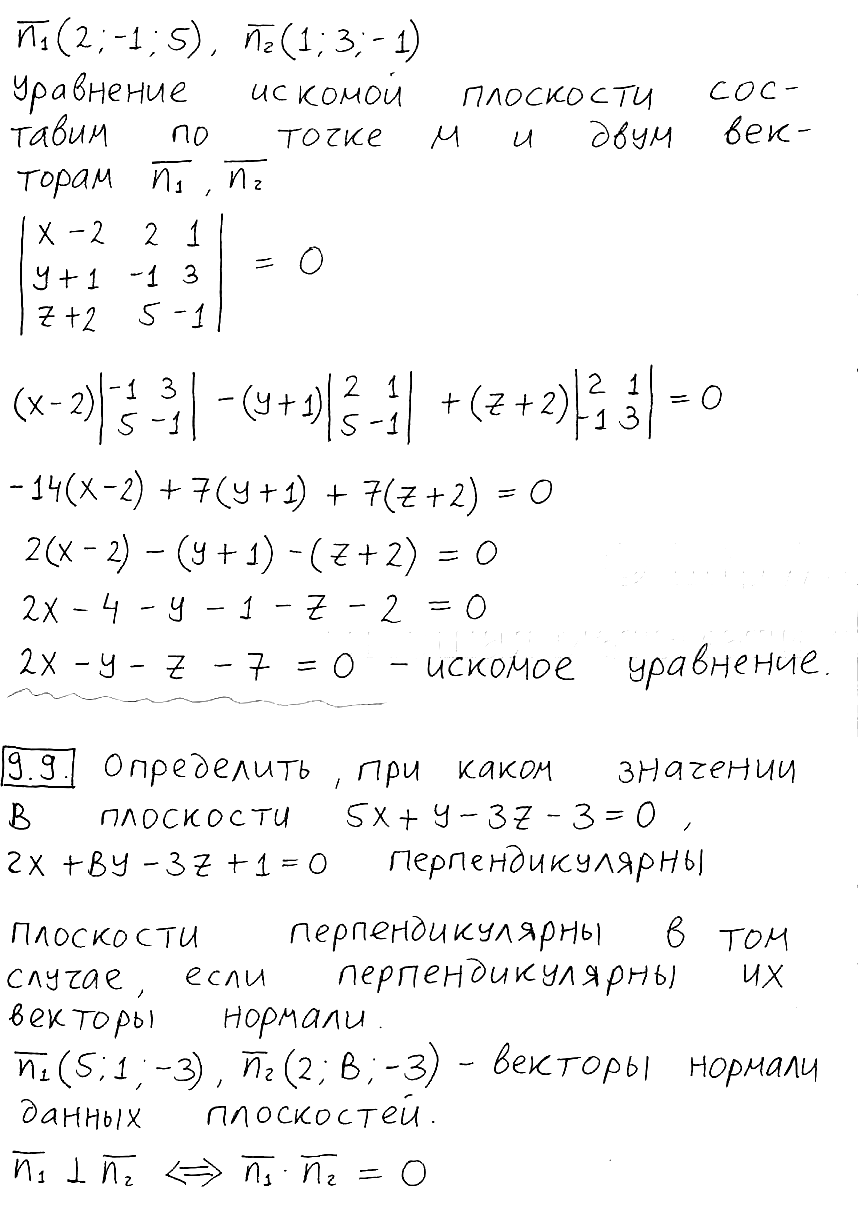 n̅₁(2; -1; 5), n̅₂(1; 3; -1)
Уравнение искомой плоскости сос-
тавим по точке М и двум век-
торам n̅₁, n̅₂
| x - 2 2 1 |
| y + 1 -1 3 | = 0
| z + 2 5 -1 |
(x-2)|-1 3; 5 -1| - (y+1)|2 1; 5 -1| + (z+2)|2 1; -1 3| = 0
-14(x-2) + 7(y+1) + 7(z+2) = 0
2(x-2) - (y+1) - (z+2) = 0
2x - 4 - y - 1 - z - 2 = 0
2x - y - z - 7 = 0 - искомое уравнение.
9.9. Определить, при каком значении
В плоскости 5x + y - 3z - 3 = 0,
2x + By - 3z + 1 = 0 перпендикулярны
Плоскости перпендикулярны в том
случае, если перпендикулярны их
векторы нормали.
n̅₁(5; 1; -3), n̅₂(2; B; -3) - векторы нормали
данных плоскостей.
n̅₁ ⊥ n̅₂ ⇔ n̅₁ · n̅₂ = 0